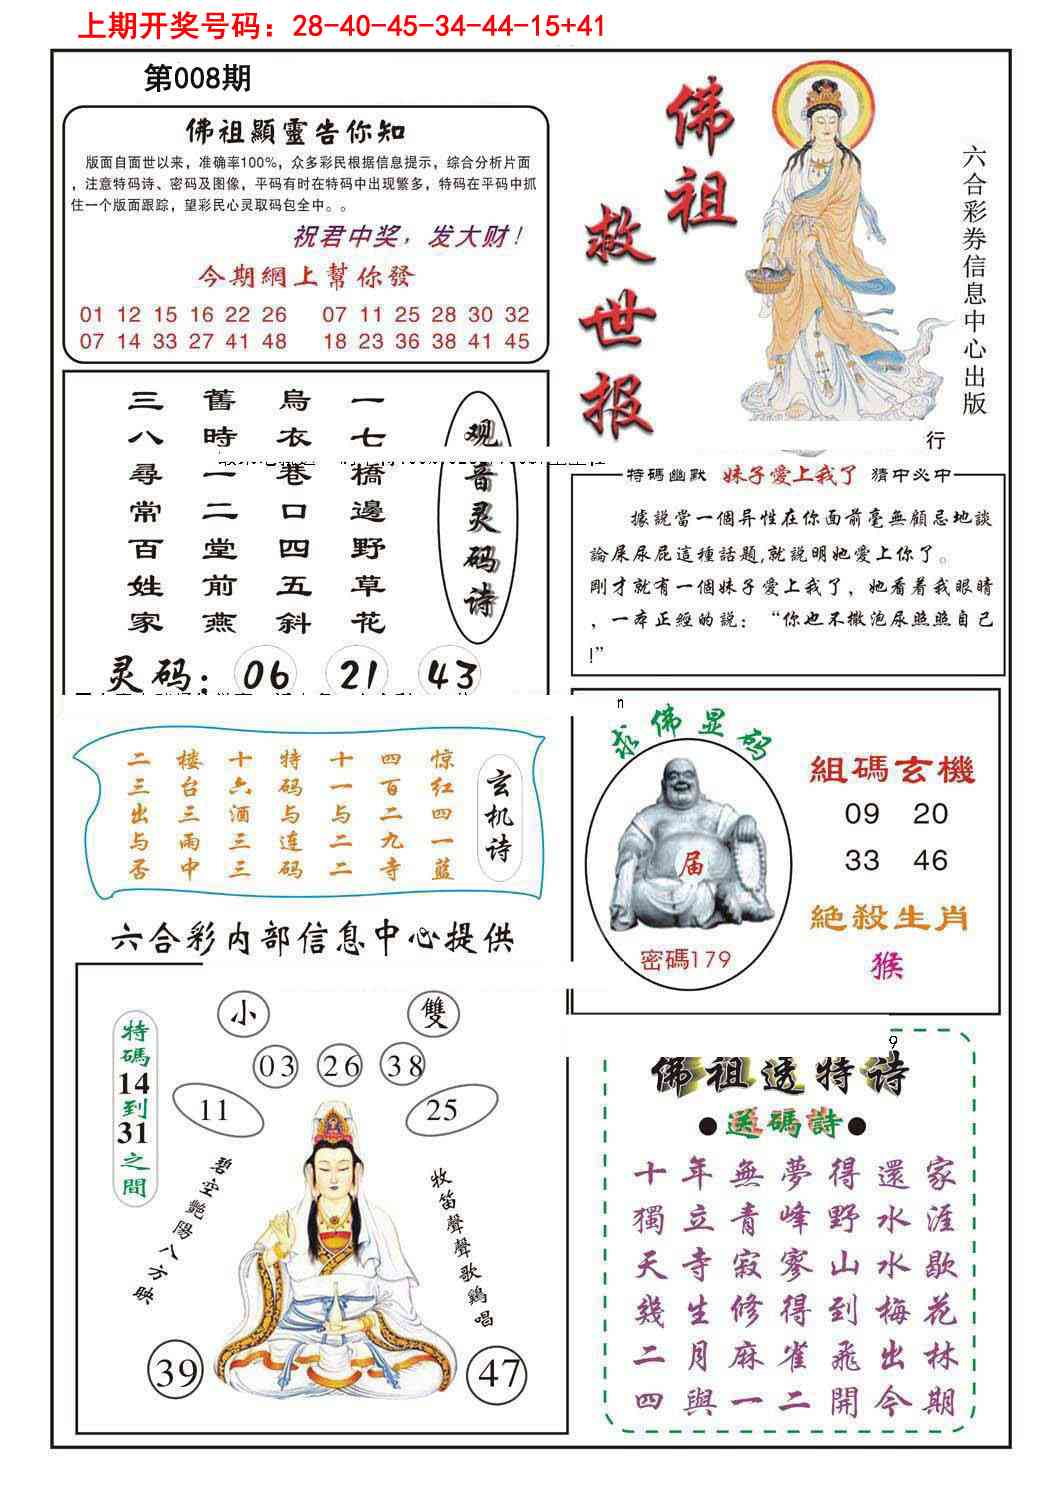 上期开奖号码：28-40-45-34-44-15+41
第008期
佛祖顯靈告你知
版面自面世以来，准确率100%，众多彩民根据信息提示，综合分析片面
，注意特码诗、密码及图像，平码有时在特码中出现繁多，特码在平码中抓
住一个版面跟踪，望彩民心灵取码包全中。。
祝君中奖，发大财！
今期網上幫你發
01 12 15 16 22 26 07 11 25 28 30 32
07 14 33 27 41 48 18 23 36 38 41 45
佛祖
救世报
六合彩券信息中心出版
行
观音灵码诗
一七橋邊野草花
烏衣巷口四五斜
舊時一二堂前燕
三八尋常百姓家
灵码：06 21 43
特碼幽默 妹子愛上我了 猜中必中
據說當一個异性在你面前毫無顧忌地談
論屎尿屁這種話題,就説明她愛上你了。
剛才就有一個妹子愛上我了，她看着我眼睛
，一本正經的説：“你也不撒泡尿照照自己
!”
n
玄机诗
惊红四一蓝
四百二九寺
十一与二二
特码与连码
十六酒三三
楼台三雨中
二三出与否
六合彩内部信息中心提供
求佛显码
届
密碼179
組碼玄機
09 20
33 46
絶殺生肖
猴
特碼14到31之間
小 雙
03 26 38
11 25
碧空艷陽八方映
牧笛聲聲歌鷄唱
39 47
9
佛祖透特诗
●送碼詩●
十年無夢得還家
獨立青峰野水涯
天寺寂寥山水歇
幾生修得到梅花
二月麻雀飛出林
四與一二開今期